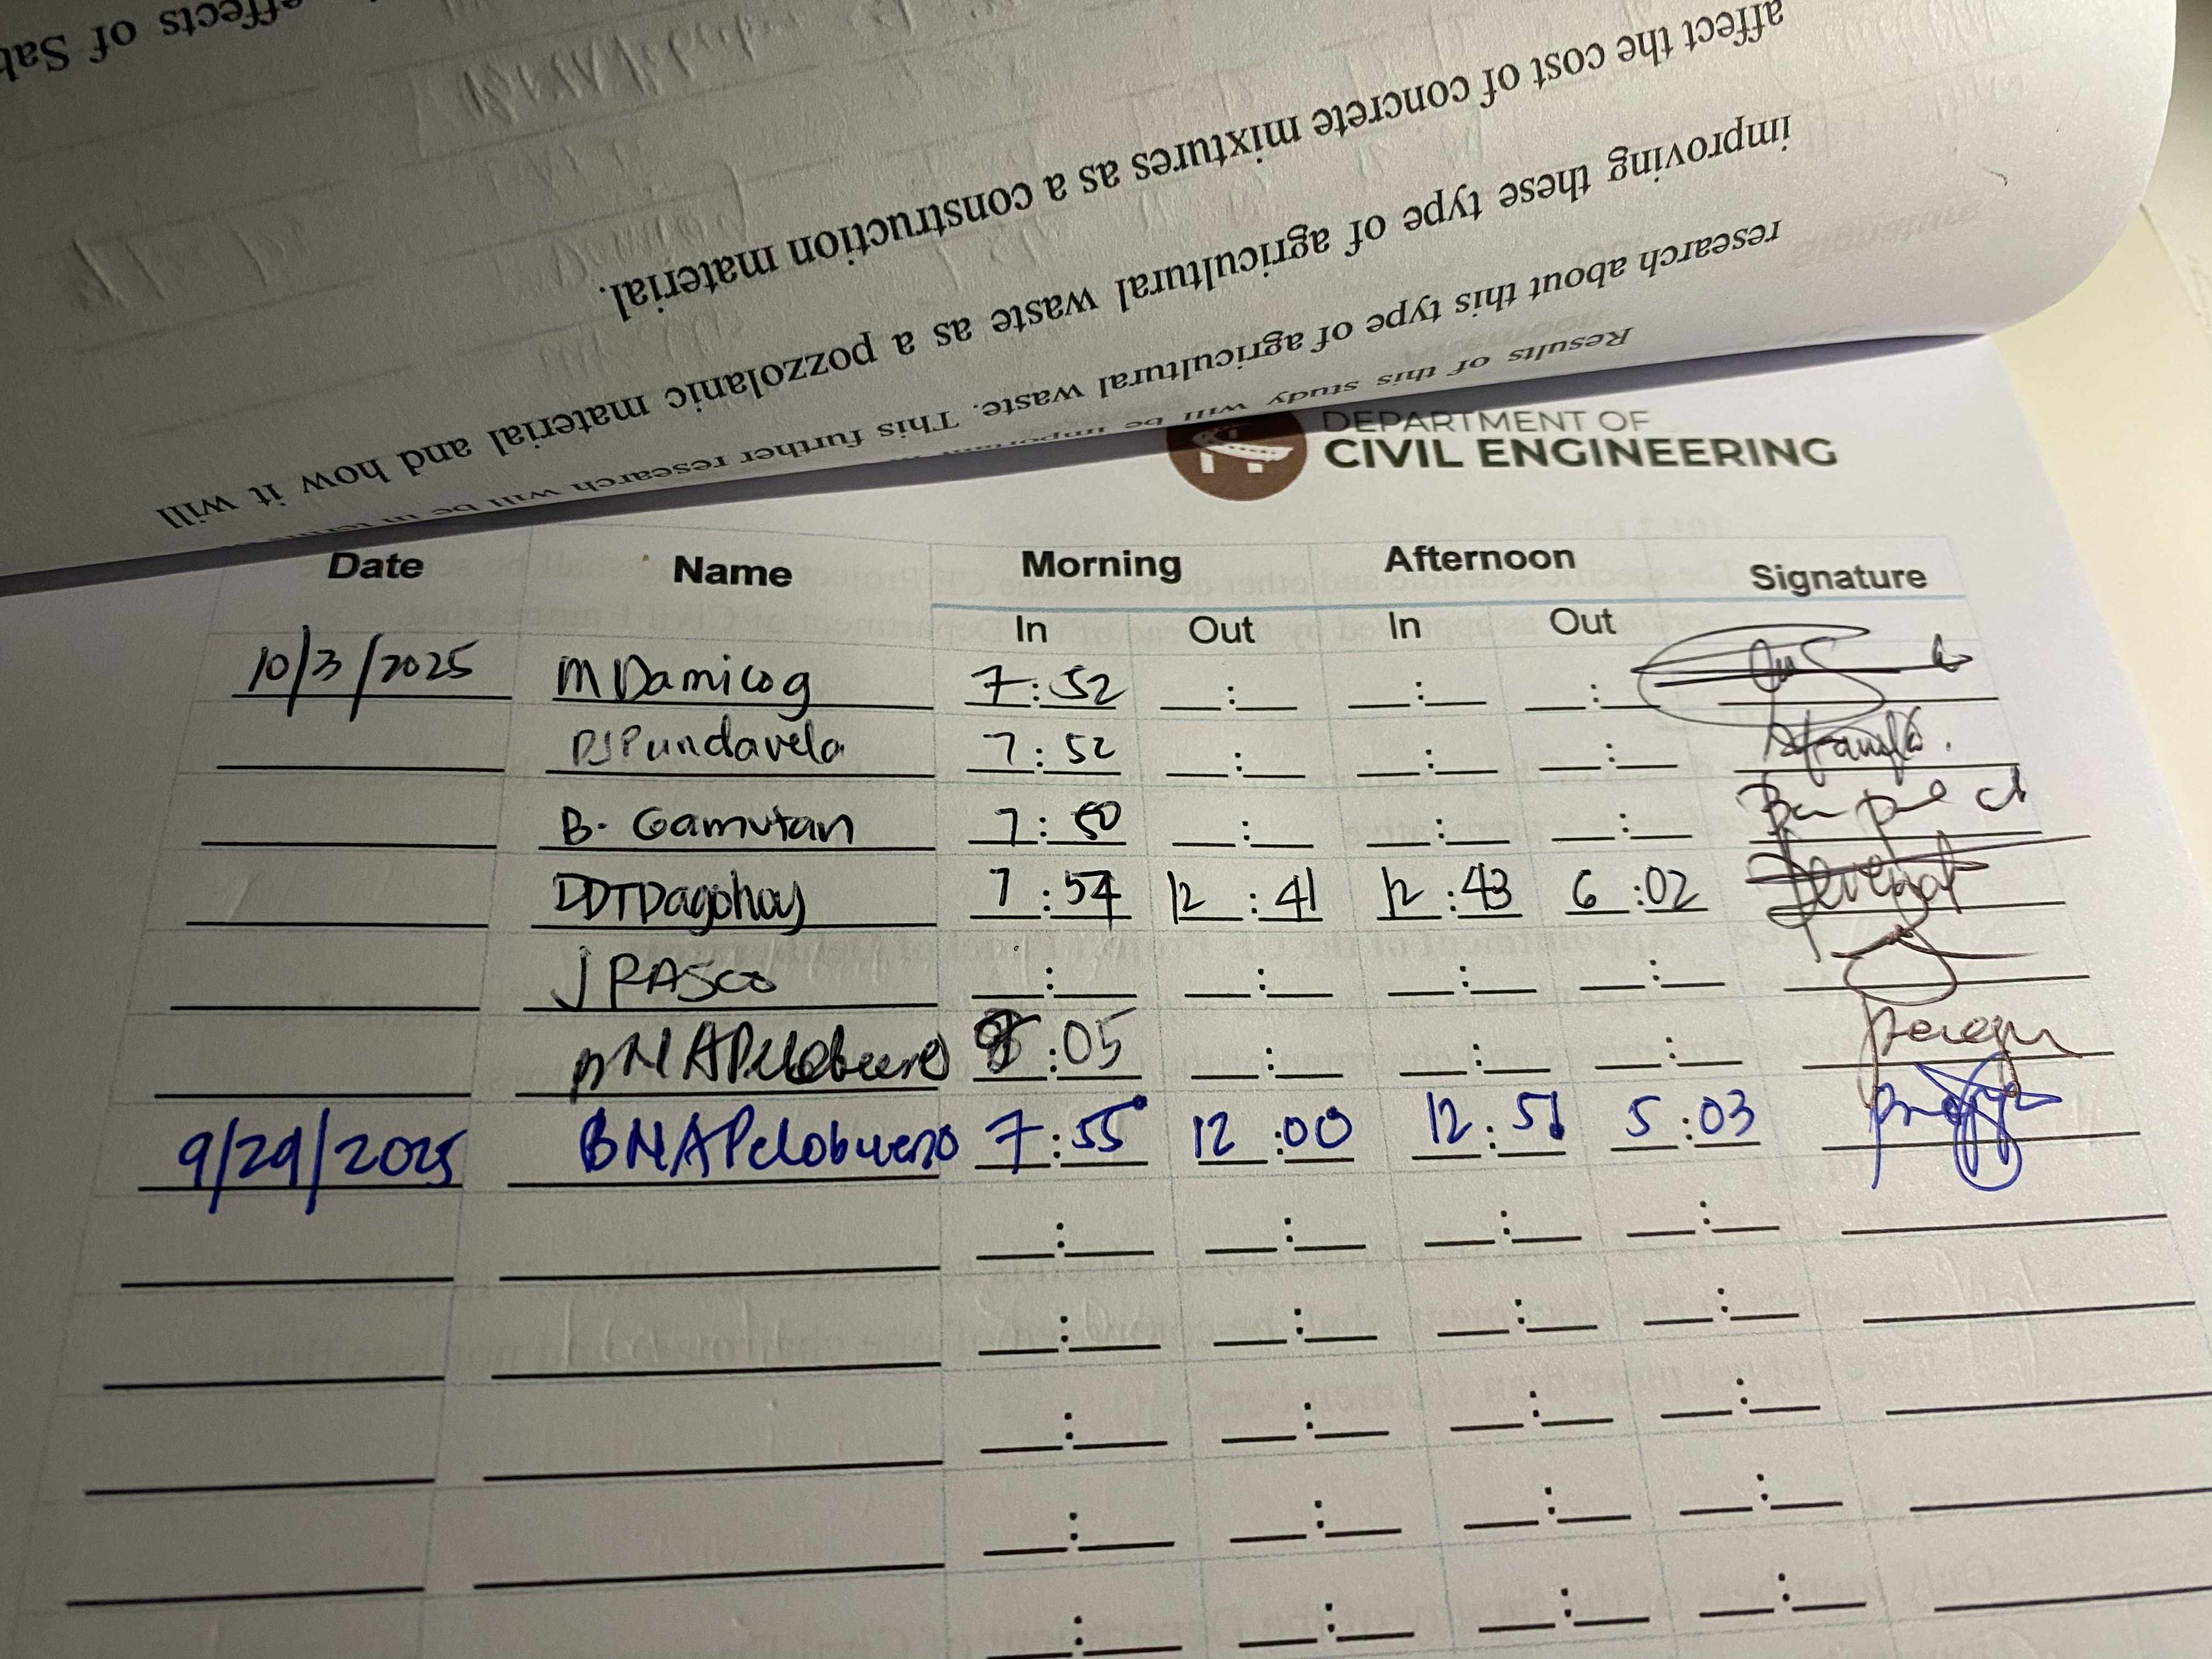 effects of
affect the cost of concrete mixtures as a construction material.
improving these type of agricultural waste as a pozzolanic material and how it will
research about this type of agricultural waste. This further research will be in
Results of this study will be
DEPARTMENT OF
CIVIL ENGINEERING
Date Name Morning Afternoon Signature
In Out In Out
10/3/2025 M Damicog 7:52 : : :
DJPundavela 7:52 : : :
B. Gamutan 7:50 : : :
DDTDagohoy 7:57 12:41 12:43 6:02
J PASCO : : : :
:05 : : :
9/29/2025 BNAPelobueno 7:55 12:00 12:51 5:03
: : : :
: : : :
: : : :
: : : :
: : : :